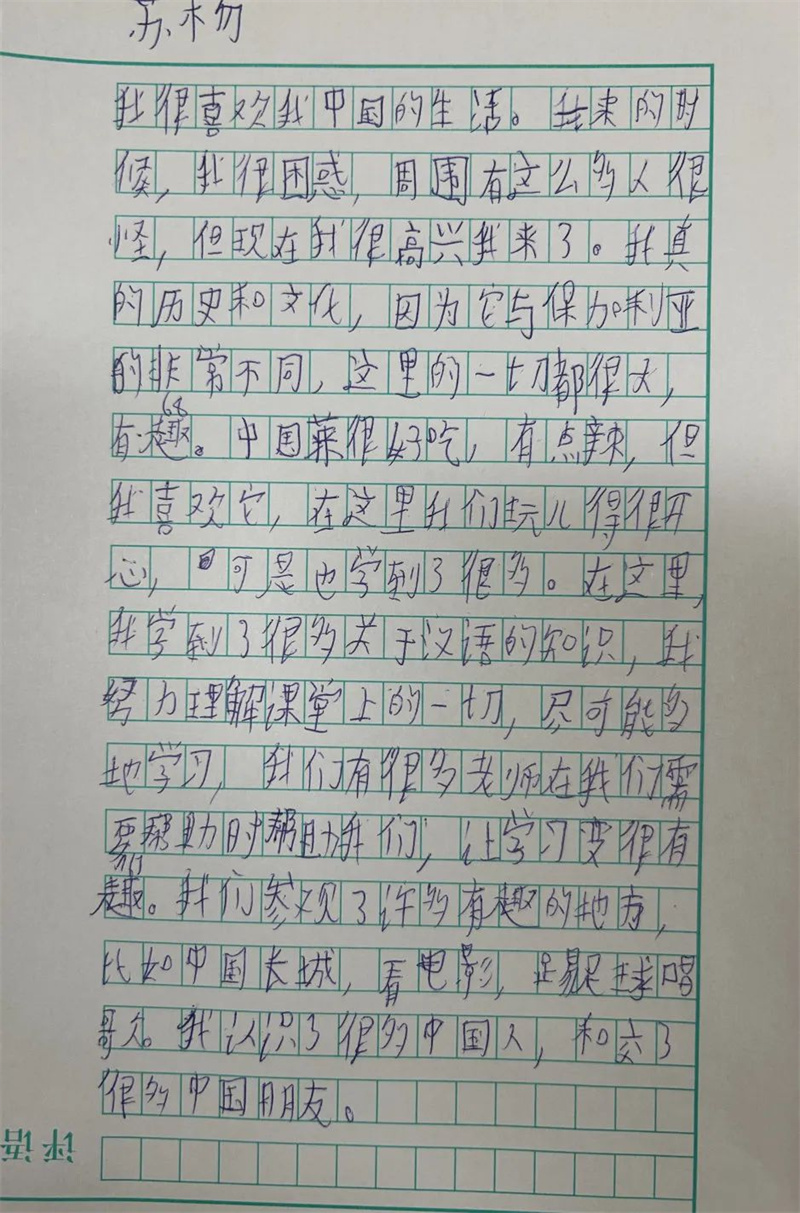 苏杨
我很喜欢我中国的生活。我来的时
候，我很困惑，周围有这么多人很
怪，但现在我很高兴我来了。我真
的历史和文化，因为它与保加利亚
的非常不同，这里的一切都很大，
有趣。中国菜很好吃，有点辣，但
我喜欢它，在这里我们玩儿得很开
心，可是也学到了很多。在这里，
我学到了很多关于汉语的知识，我
努力理解课堂上的一切，尽可能多
地学习，我们有很多老师在我们需
要帮助时帮助我们，让学习变很有
趣。我们参观了许多有趣的地方，
比如中国长城，看电影，踢足球唱
歌。我认识了很多中国人，和交了
很多中国朋友。
评语